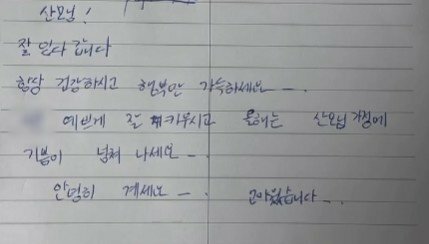 산모님!
잘 있다 갑니다
항상 건강하시고 행복만 가득하세요 ―.
예쁘게 잘 키우시고 올해는 산모님 가정에
기쁨이 넘쳐 나세요 ―.
안녕히 계세요 ―. 고마웠습니다 ―.